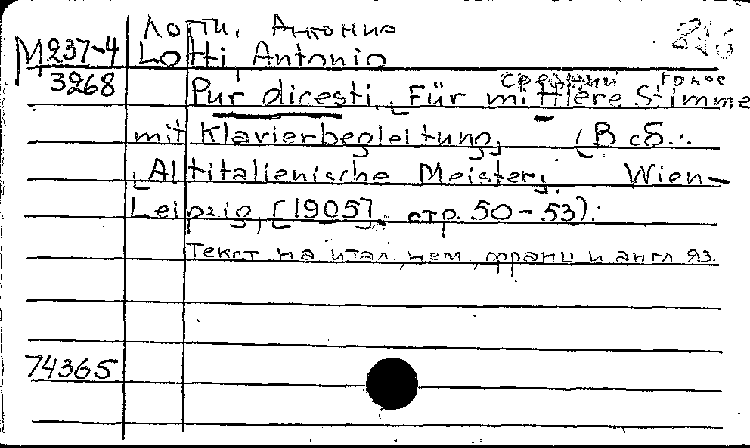 Лотти, Антонио
М237-4 Lotti, Antonio
3268
средний голос
Pur dicesti. Für mittlere Stimme
mit Klavierbegleitung, (В сб.:
Altitalienische Meister, Wien-
Leipzig, [1905], стр. 50-53).
Текст на итал., нем., франц. и англ. яз.
74365